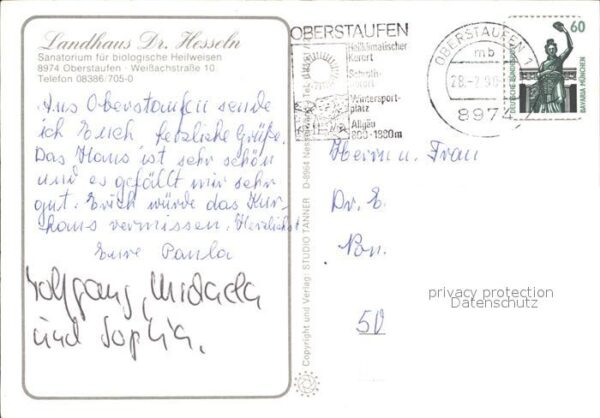 Landhaus Dr. Hesseln
Sanatorium für biologische Heilweisen
8974 Oberstaufen · Weißachstraße 10
Telefon 08386/705-0
Aus Oberstaufen sende
ich Euch herzliche Grüße.
Das Haus ist sehr schön
und es gefällt mir sehr
gut. Erich würde das Kur-
haus vermissen. Herzlichst
Eure Paula
Wolfgang, Michaela
und Sophia.
Copyright und Verlag: STUDIO TANNER · D-8964 Nesselwang · Tel.
OBERSTAUFEN
Heilklimatischer
Kurort
Schroth-
kurort
Wintersport-
platz
Allgäu
800-1800m
OBERSTAUFEN 1
mb
8974
60
DEUTSCHE BUNDESPOST
BAVARIA MÜNCHEN
Herrn u. Frau
Dr. E.
50
privacy protection
Datenschutz